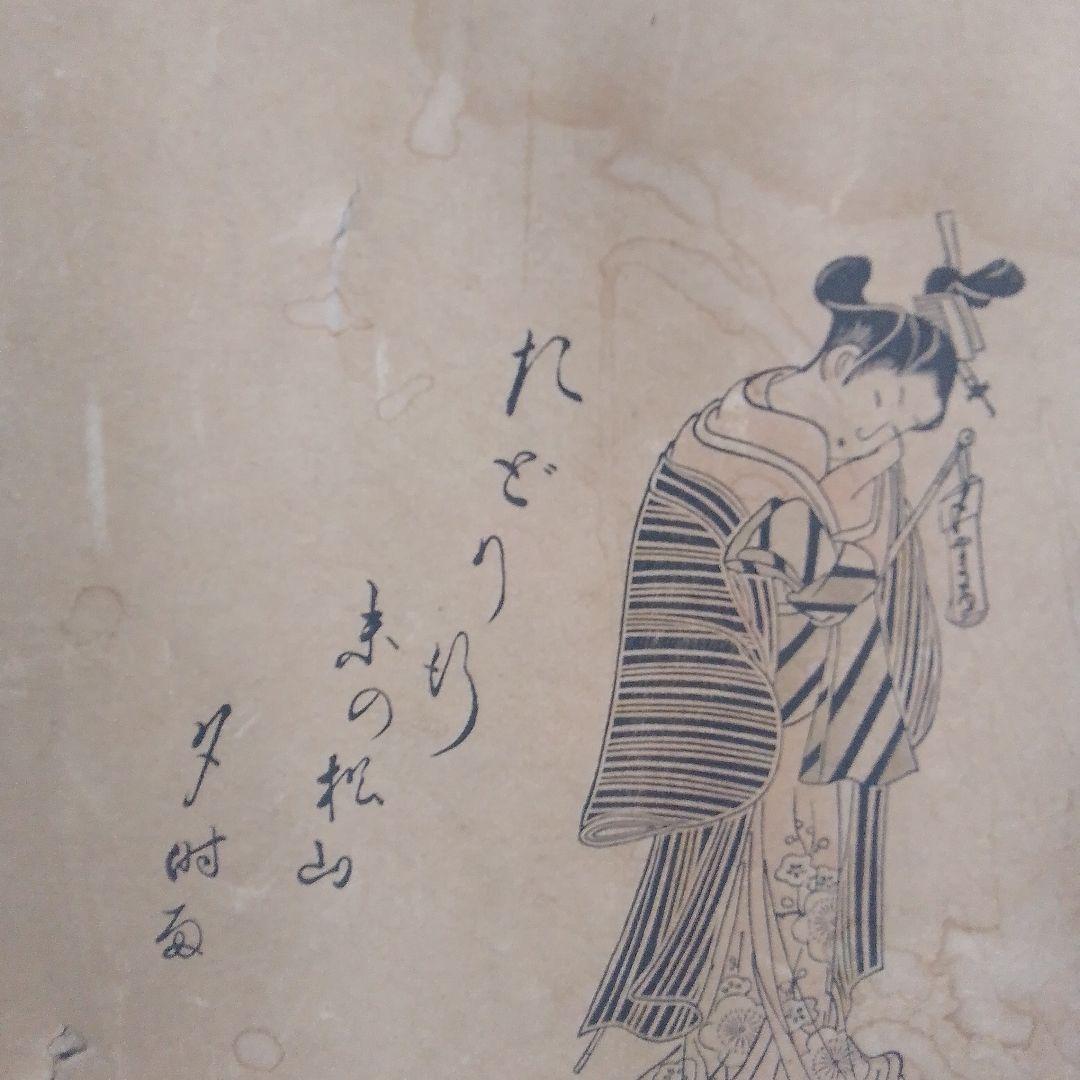 たどり行
末の松山
夕時雨